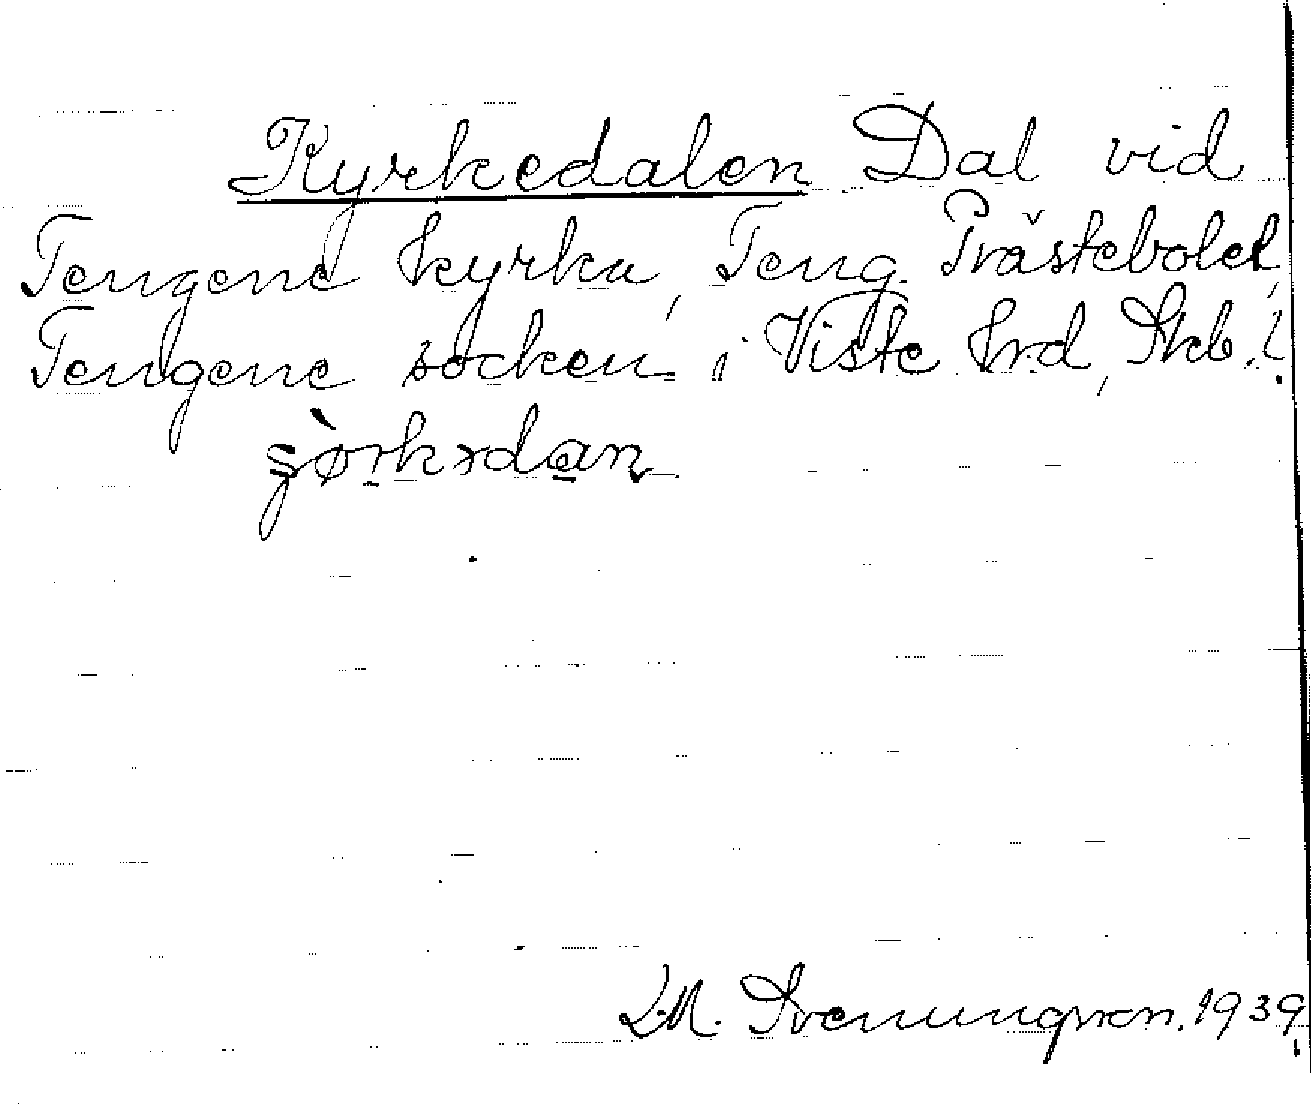 Kyrkedalen Dal vid
Tengene kyrka, Teng. Prästebolet,
Tengene socken i Viste hrd, Skb.l.
S. M. Svenungsson. 1939.